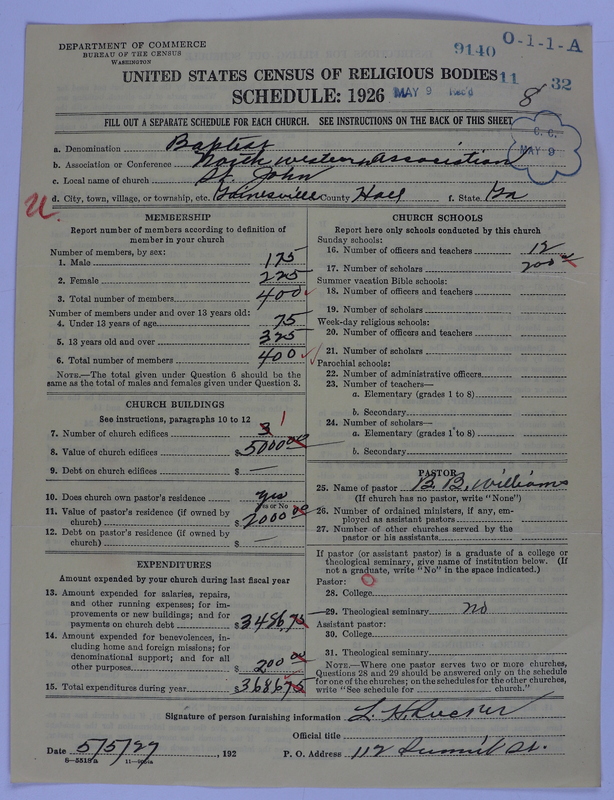 DEPARTMENT OF COMMERCE
BUREAU OF THE CENSUS
WASHINGTON
9140 O-1-1-A
UNITED STATES CENSUS OF RELIGIOUS BODIES 11 32
SCHEDULE: 1926 MAY 9 Rec'd 8
FILL OUT A SEPARATE SCHEDULE FOR EACH CHURCH. SEE INSTRUCTIONS ON THE BACK OF THIS SHEET
C. C.
MAY 9
a. Denomination Baptist
b. Association or Conference North Western Association
c. Local name of church St. John
d. City, town, village, or township, etc. Gainesville County Hall f. State Ga
U.
MEMBERSHIP
Report number of members according to definition of
member in your church
Number of members, by sex:
1. Male 175
2. Female 225
3. Total number of members 400
Number of members under and over 13 years old:
4. Under 13 years of age 75
5. 13 years old and over 325
6. Total number of members 400
NOTE.—The total given under Question 6 should be
same as the total of males and females given under Question 3.
CHURCH BUILDINGS
See instructions, paragraphs 10 to 12
7. Number of church edifices 3 1
8. Value of church edifices $ 5000 00
9. Debt on church edifices $ —
10. Does church own pastor's residence Yes
Yes or No
11. Value of pastor's residence (if owned by
church) $ 2000 00
12. Debt on pastor's residence (if owned by
church) $ —
EXPENDITURES
Amount expended by your church during last fiscal year
13. Amount expended for salaries, repairs,
and other running expenses; for im-
provements or new buildings; and for
payments on church debt $ 3486.75
14. Amount expended for benevolences, in-
cluding home and foreign missions; for
denominational support; and for all
other purposes $ 200 00
15. Total expenditures during year $ 3686 75
CHURCH SCHOOLS
Report here only schools conducted by this church
Sunday schools:
16. Number of officers and teachers 12
17. Number of scholars 200
Summer vacation Bible schools:
18. Number of officers and teachers
19. Number of scholars
Week-day religious schools:
20. Number of officers and teachers
21. Number of scholars
Parochial schools:
22. Number of administrative officers
23. Number of teachers—
a. Elementary (grades 1 to 8)
b. Secondary
24. Number of scholars—
a. Elementary (grades 1 to 8)
b. Secondary
PASTOR
25. Name of pastor B. B. Williams
(If church has no pastor, write "None")
26. Number of ordained ministers, if any, em-
ployed as assistant pastors
27. Number of other churches served by the
pastor or his assistants
If pastor (or assistant pastor) is a graduate of a college or
theological seminary, give name of institution below. (If
not a graduate, write "No" in the space indicated.)
Pastor: O
28. College
29. Theological seminary no
Assistant pastor:
30. College
31. Theological seminary
NOTE.—Where one pastor serves two or more churches,
Questions 28 and 29 should be answered only on the schedule
for one of the churches; on the schedules for the other churches,
write "See schedule for church."
Signature of person furnishing information L. H. Rucker
Official title
Date 5/5/27, 192 P. O. Address 112 Summit St.
8-5519a